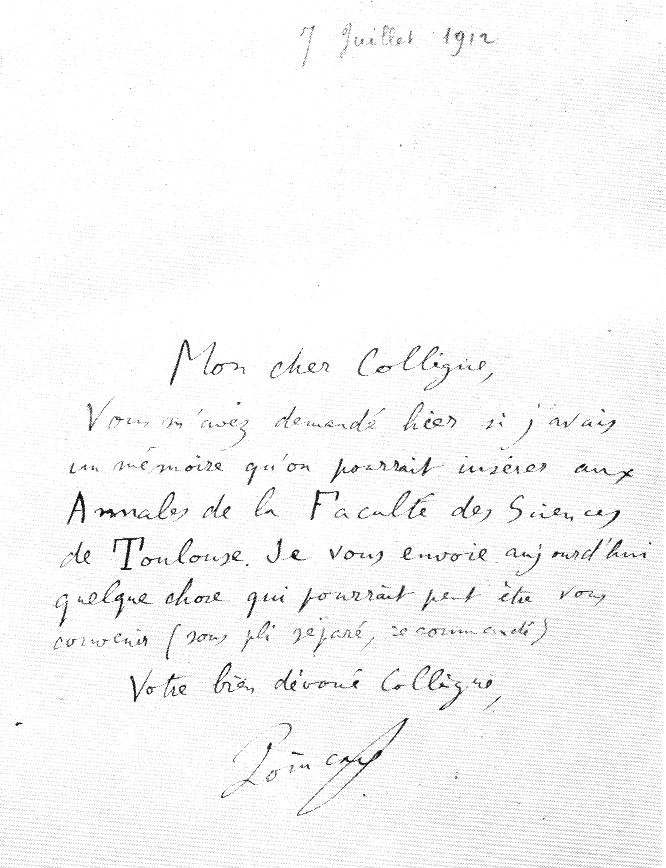 7 Juillet 1912
Mon cher Collègue,
Vous m'avez demandé hier si j'avais
un mémoire qu'on pourrait insérer aux
Annales de la Faculté des Sciences
de Toulouse. Je vous envoie aujourd'hui
quelque chose qui pourrait peut être vous
convenir (sous pli séparé, recommandé)
Votre bien dévoué Collègue,
Poincaré